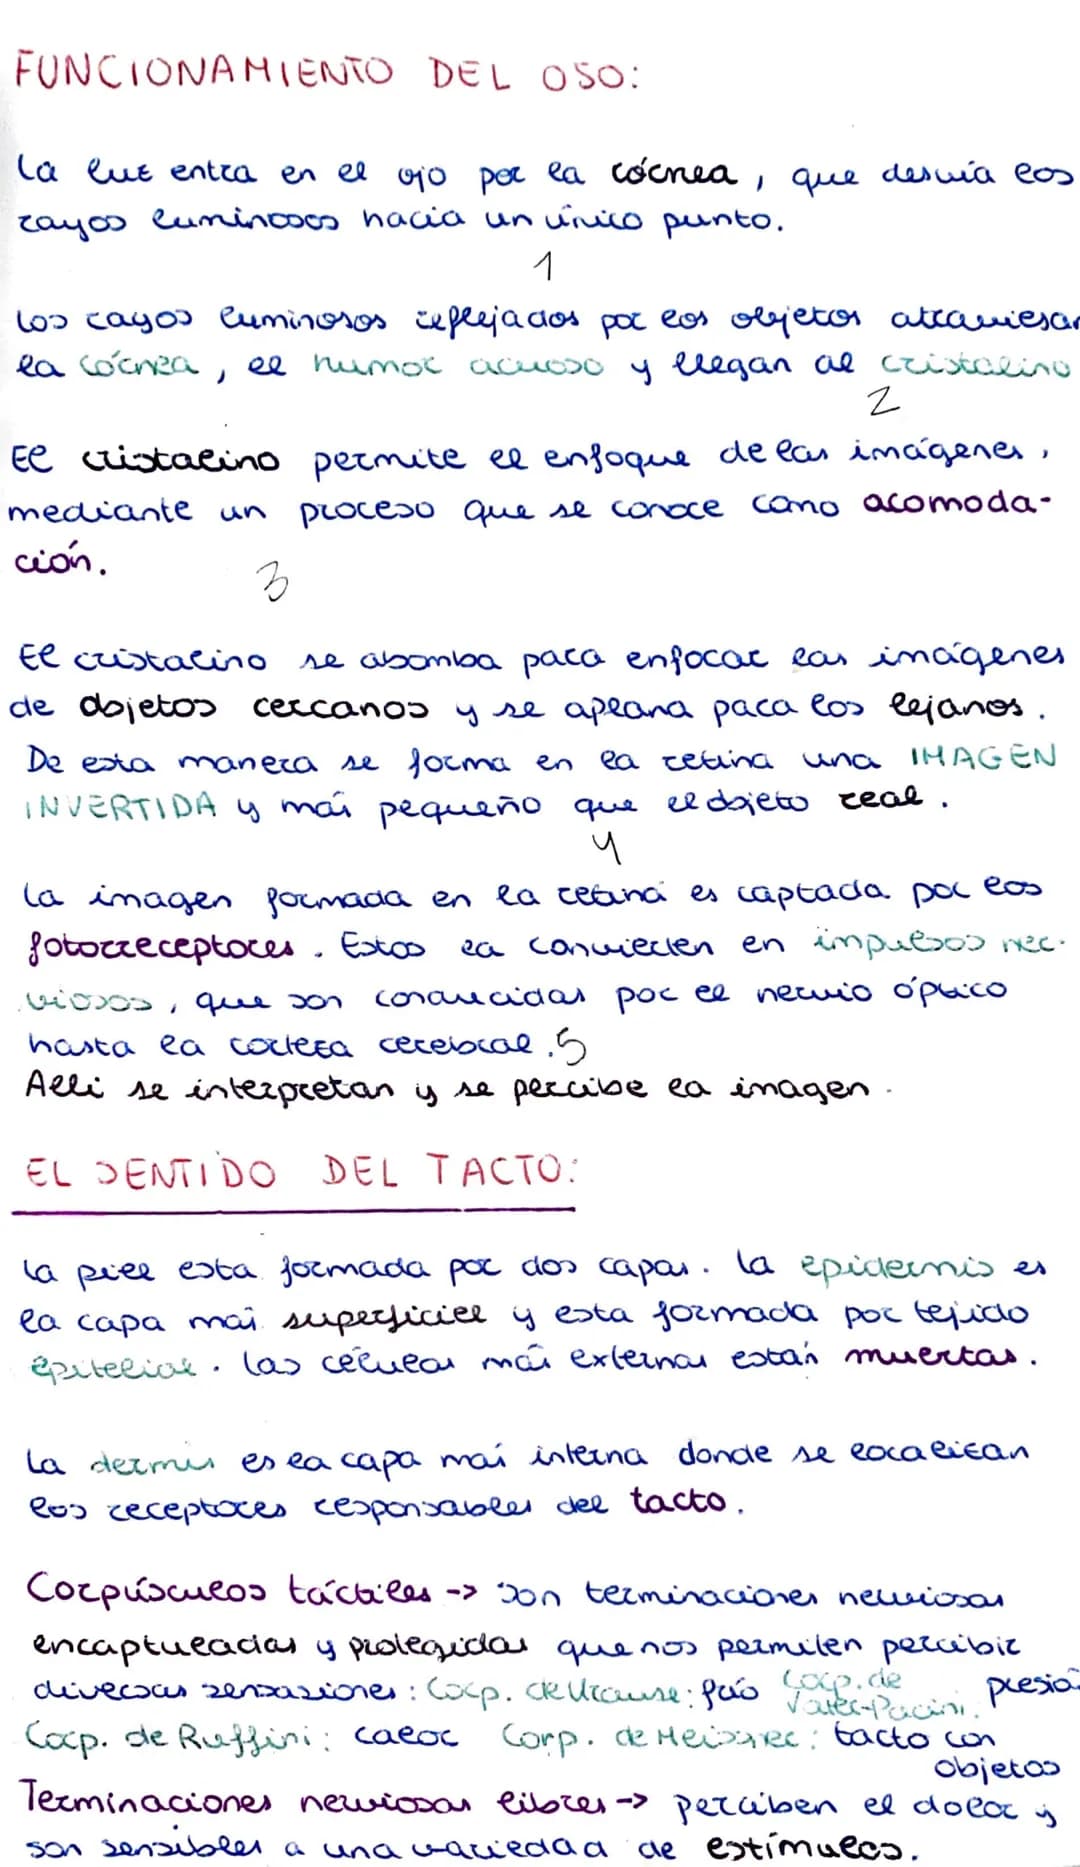 FUNCIONAMIENTO DEL OSO:
La luz entra en el ojo por la córnea, que desvía los
rayos luminosos hacia un único punto.
1
Los rayos luminosos reflejados por los objetos atraviesan
la córnea, el humor acuoso y llegan al cristalino
2
El cristalino permite el enfoque de las imágenes,
mediante un proceso que se conoce como acomoda-
ción.
3
El cristalino se abomba para enfocar las imágenes
de objetos cercanos y se aplana para los lejanos.
De esta manera se forma en la retina una IMAGEN
INVERTIDA y más pequeño que el objeto real.
4
La imagen formada en la retina es captada por los
fotorreceptores. Estos la convierten en impulsos ner-
viosos, que son conducidas por el nervio óptico
hasta la corteza cerebral. 5
Alli se interpretan y se percibe la imagen.
EL SENTIDO DEL TACTO:
La piel esta formada por dos capas. La epidermis es
la capa más superficiel y esta formada por tejido
epitelial. Las células más externas están muertas.
La dermis es la capa más interna donde se localizan
los receptores responsables del tacto.
Corpúsculos táctiles -> Son terminaciones nerviosas
encaptueadas y protegidas que nos permiten percibir
diversas sensasiones: Corp. de Krause: frío Corp. de Vater-Pacini: presión
Corp. de Ruffini: calor Corp. de Meissner: tacto con
objetos
Terminaciones nerviosas libres -> perciben el dolor y
son sensibles a una variedad de estímulos.